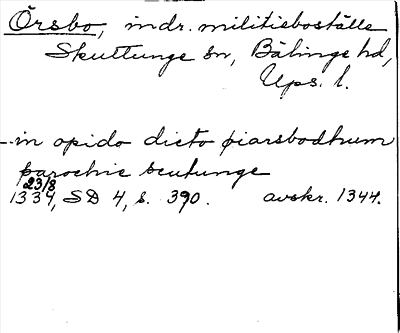 Örsbo, indr. militieboställe
Skuttunge sn, Bälinge hd,
Ups. l.
-- in opido dicto þiarsbodhum
parochie scutunge
23/8
1334, SD 4, s. 390. avskr. 1344.